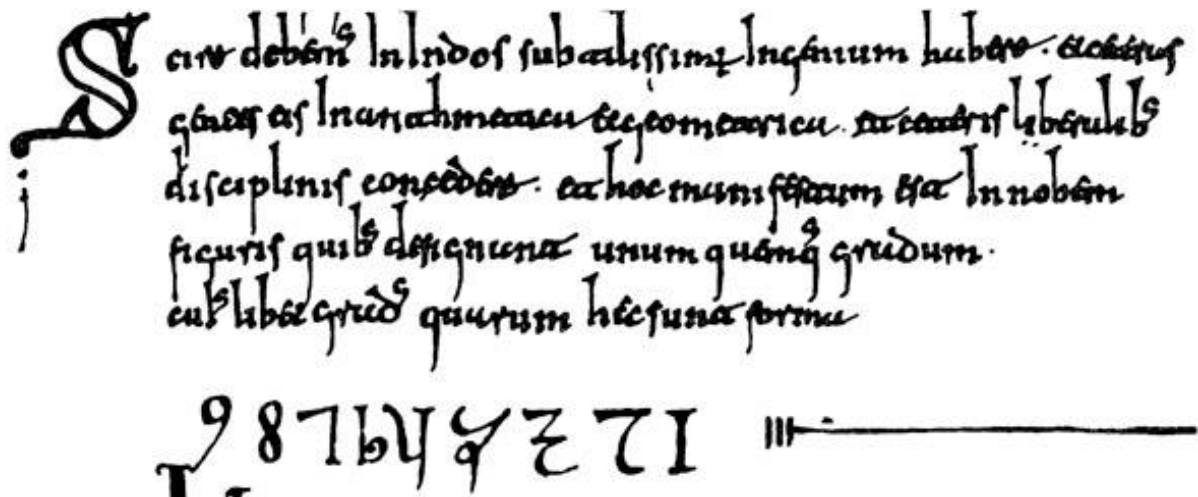 Scire debem' In Indos subtilissimū Ingenium habere · et ceteras
gentes eis In arithmetica et geometrica · et ceteris liberalib'
disciplinis concedere · et hoc manifestum est In nobem
figuris quib' designant unum quemq' gradum ·
cui' libet grad' quarum hec sunt forma
9 8 7 6 5 4 3 2 1